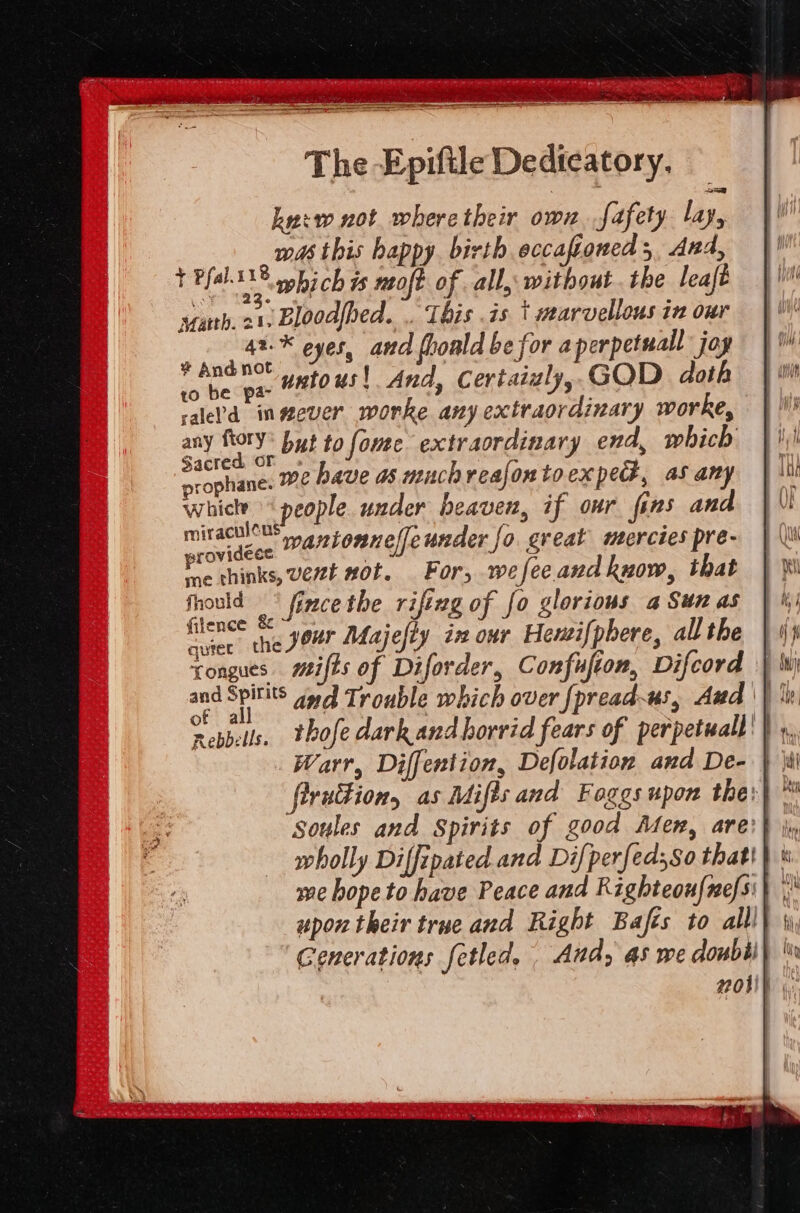 The Epiſtle Dedicatory.
know not where their own ſafety lay,
was this happy birth occaſioned; And,
which is moſt of all, without the leaſt
Bloodſhed. This is † marvellous in our
eyes, and ſhould be for a perpetuall joy
unto us! And, Certainly, GOD doth
never worke any extraordinary worke,
but to ſome extraordinary end, which
we have as much reaſon to expect, as any
people under heaven, if our ſins and
wantonneſſe under ſo great mercies pre-
vent not. For, we ſee and know, that
ſince the riſing of ſo glorious a Sun as
your Majeſty in our Hemiſphere, all the
miſts of Diſorder, Confuſion, Diſcord
and Trouble which over ſpread us, And
thoſe dark and horrid fears of perpetuall
Warr, Diſſention, Deſolation and De-
ſtruction, as Miſts and Foggs upon the
Soules and Spirits of good Men, are
wholly Diſſipated and Diſperſed; So that
we hope to have Peace and Righteouſneſs
upon their true and Right Baſis to all
Generations ſetled. And, as we doubt
not
† Pſal. 118
23.
Matth. 21.
42. *
* And not
to be pa-
ralel'd in
any ſtory
Sacred or
prophane.
Which
miraculous
providēce
me thinks,
ſhould
ſilence &
quiet the
Tongues
and Spirits
of all
Rebbells.